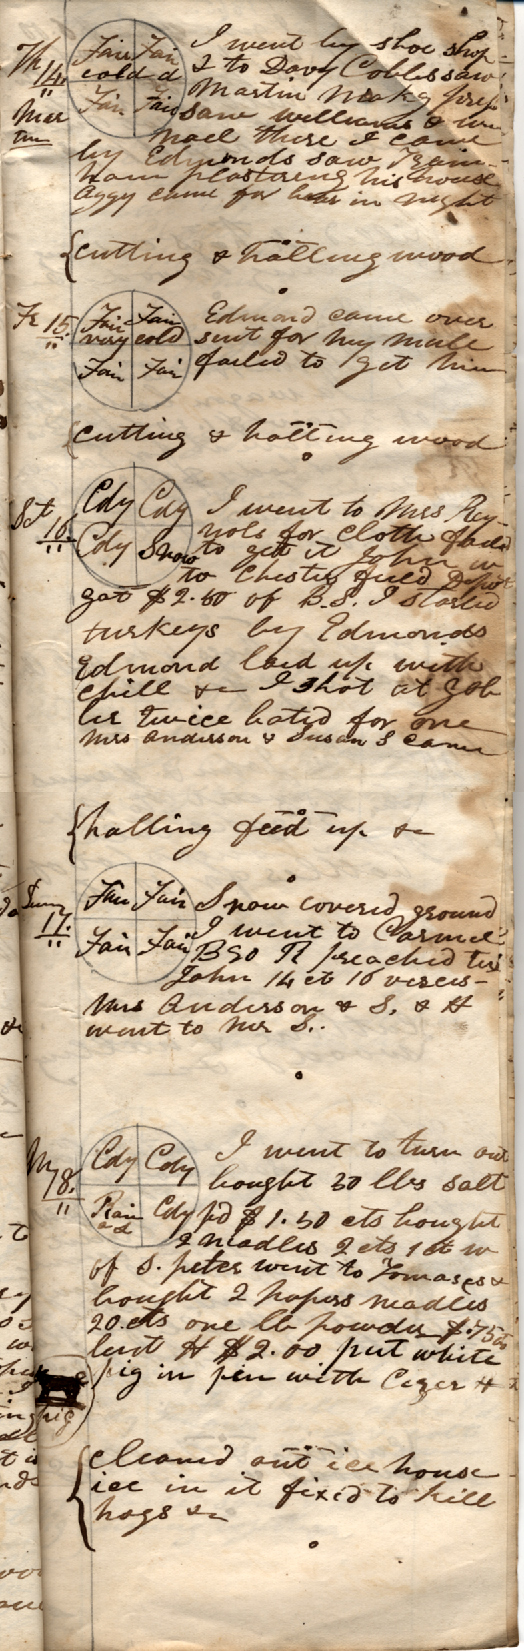 Th Fair Fair I went by shoe shop
14. cold d & to Davy Cobles saw
Fair Fair Martin
Mar saw williams &
there I came
by Edmonds saw
plastering his house
Aggy came for in night
{cutting & halling wood
Fr 15. Fair Fair Edmond came over
very cold sent for my mule
Fair Fair failed to get him
{cutting & halling wood
St Cdy Cdy I went to Mrs Rey-
16. Cdy Snow nols for cloth faild
to get it John w
to Chesterfield Depot
got $2.50 of B.S. I started
turkeys by Edmonds
Edmond laid up with
chill &c I shot at gob
ler twice bated for one
Mrs Anderson & Susan S came
{halling feed up &c
Sun Fair Fair Snow covered ground
17. Fair Fair I went to Carmel
Bro R preached tex
John 14 ct 16 verses-
Mrs Anderson & S. & H
went to Mr S..
M Cdy Cdy I went to turn out
18. bought 30 lbs salt
Rain Cdy pd $1.50 cts bought
2 neadles 2 cts 1 ct w
of S. peter went to Tomases &
bought 2 papers neadles
20 cts one lb powder $.75 cts
lent H $2.00 put white
pig in pen with Cezer H
pig
{cleaned out ice house
ice in it fixed to kill
hogs &c